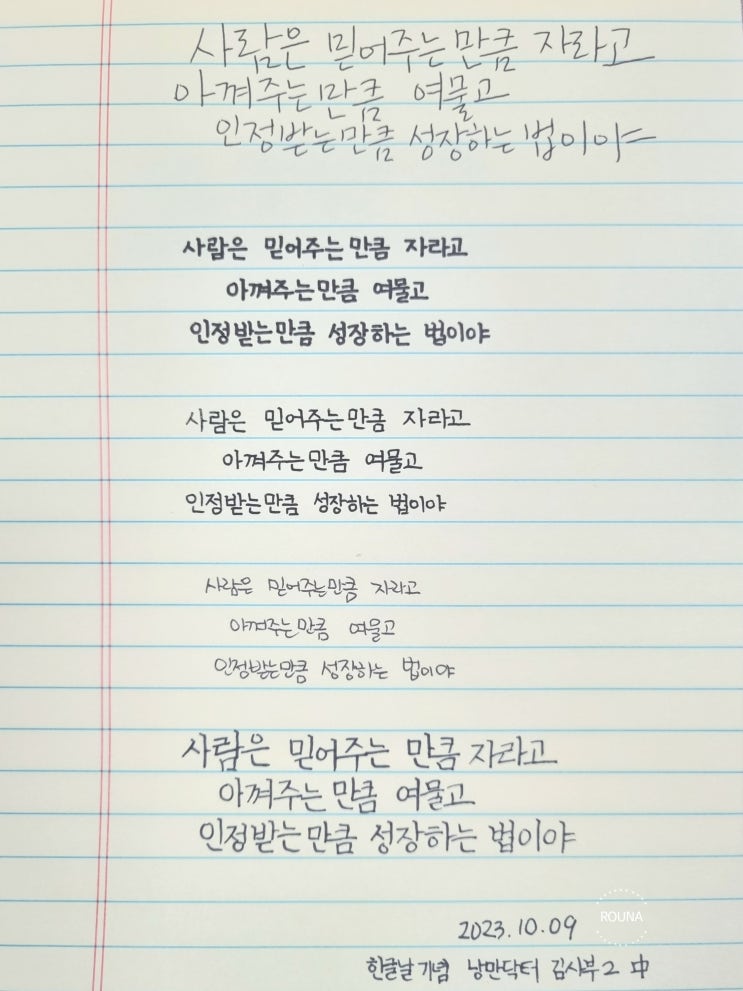 사람은 믿어주는 만큼 자라고
아껴주는 만큼 여물고
인정받는 만큼 성장하는 법이야
사람은 믿어주는 만큼 자라고
아껴주는 만큼 여물고
인정받는 만큼 성장하는 법이야
사람은 믿어주는 만큼 자라고
아껴주는 만큼 여물고
인정받는 만큼 성장하는 법이야
사람은 믿어주는 만큼 자라고
아껴주는 만큼 여물고
인정받는 만큼 성장하는 법이야
사람은 믿어주는 만큼 자라고
아껴주는 만큼 여물고
인정받는 만큼 성장하는 법이야
ROUNA
2023.10.09
한글날 기념 낭만닥터 김사부2 中